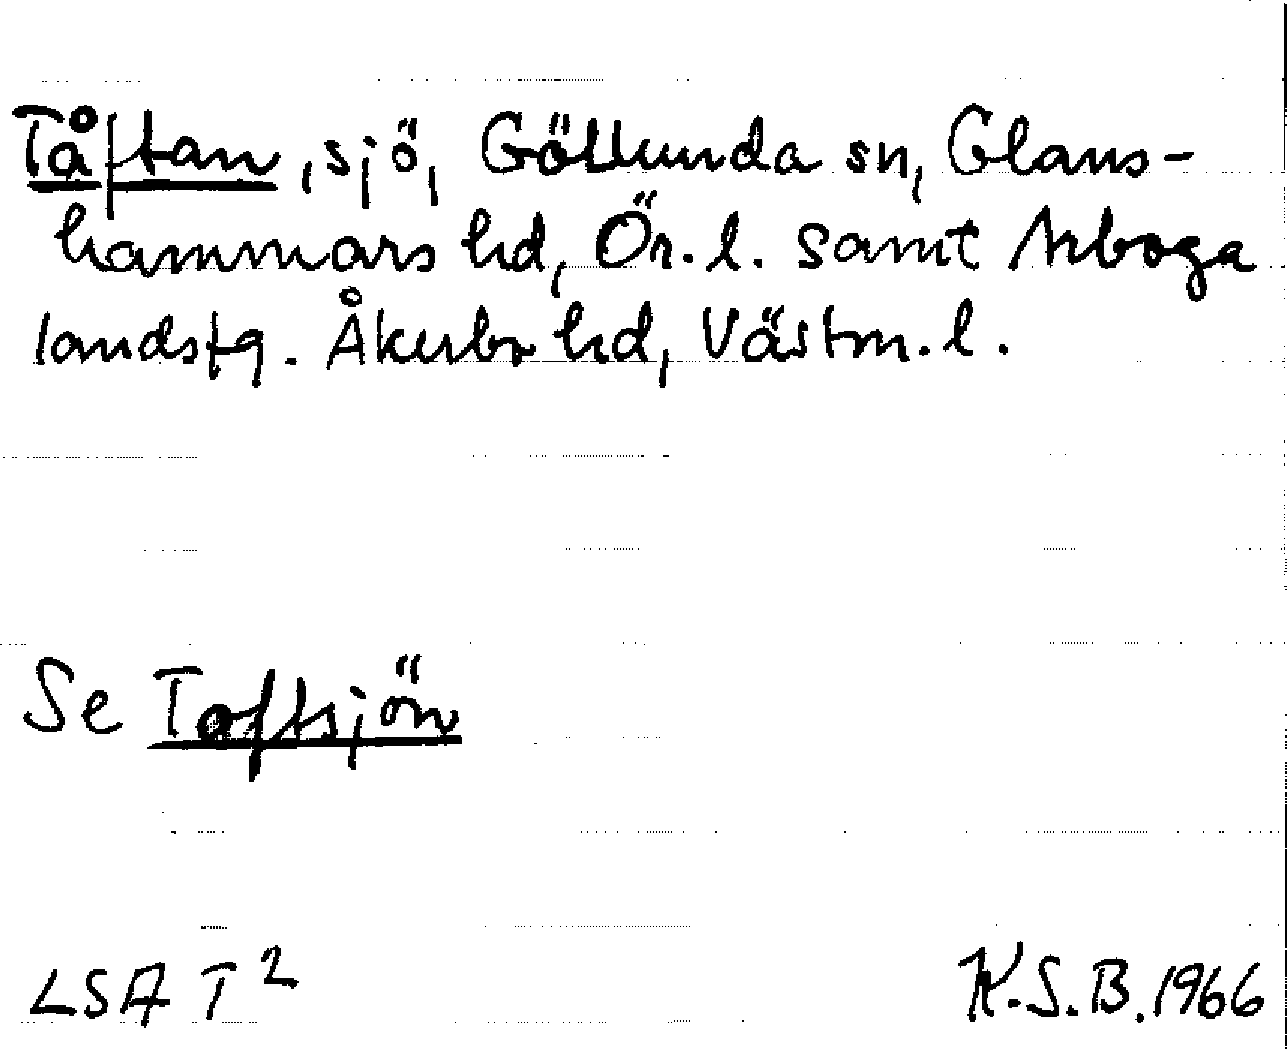 Tåftan, sjö, Götlunda sn, Glans-
hammars hd, Ör. l. samt Arboga
landsfg. Åkerbo hd, Västm. l.
Se Toftsjön
LSA T²
K.S.B. 1966